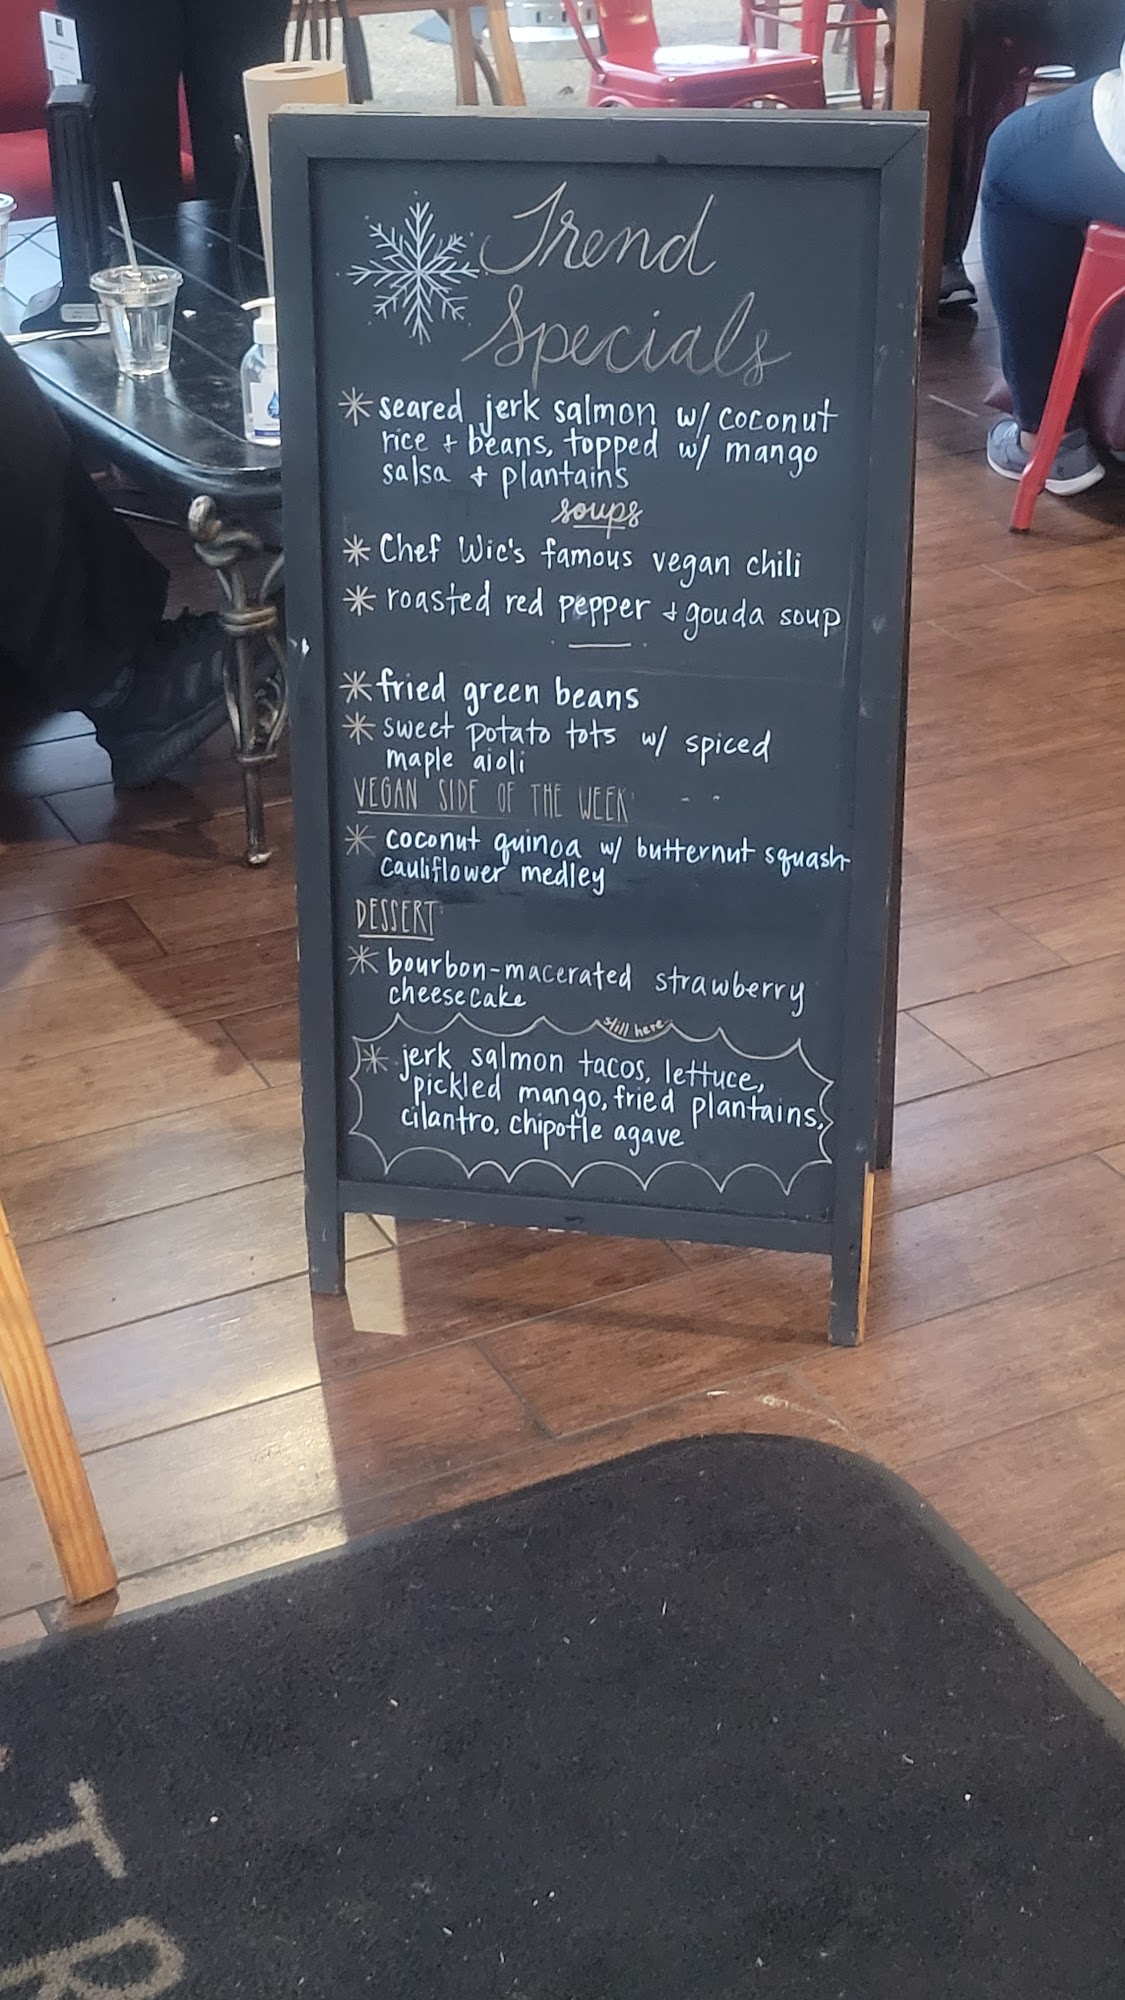 Trend
Specials
* seared jerk salmon w/ coconut
rice + beans, topped w/ mango
salsa + plantains
soups
* Chef Wic's famous vegan chili
* roasted red pepper + gouda soup
* fried green beans
* sweet potato tots w/ spiced
maple aioli
VEGAN SIDE OF THE WEEK:
* coconut quinoa w/ butternut squash
cauliflower medley
DESSERT:
* bourbon-macerated strawberry
cheesecake
still here
* jerk salmon tacos, lettuce,
pickled mango, fried plantains,
cilantro, chipotle agave
TR